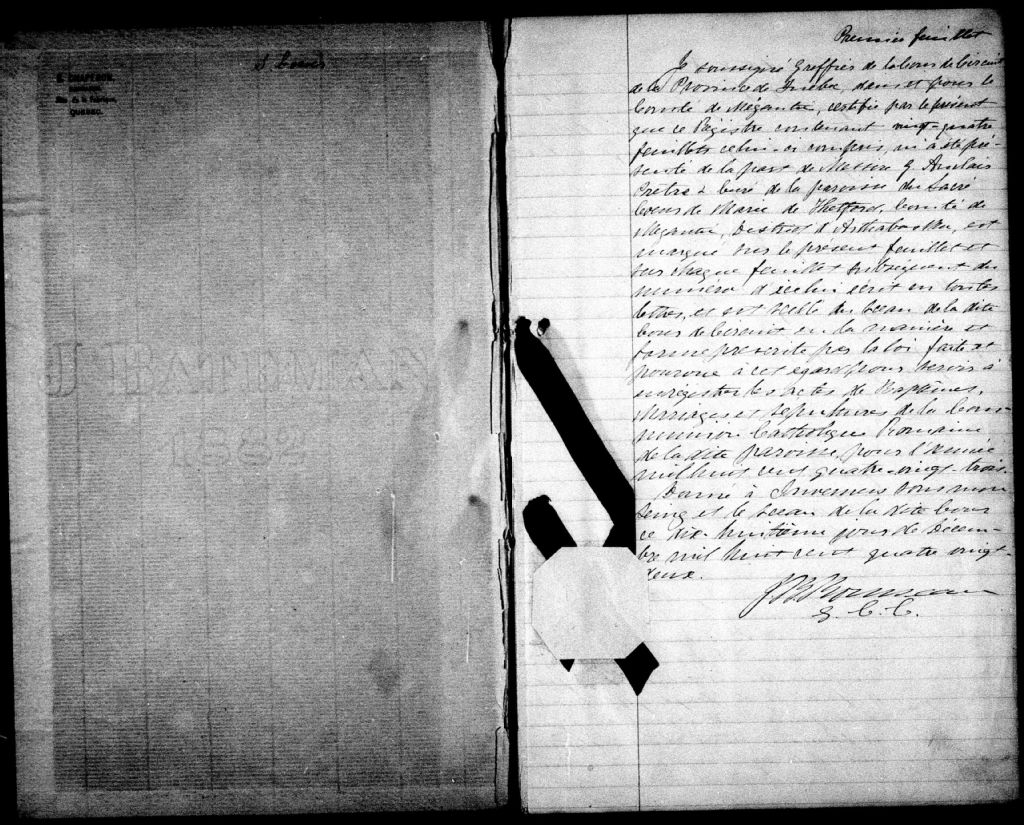 S. CHAPERON,
Rue de la Fabrique,
QUEBEC.
1882
Premier feuillet
Je soussigné Greffier de la Cour de Circuit
de la Province de Québec, dans et pour le
Comté de Mégantic, certifie par le présent
que ce Régistre contenant vingt-quatre
feuillets celui-ci compris, m'a été pré-
senté de la part de Messire
Prêtre & curé de la paroisse du Sacré
Coeur de Marie de Thetford, Comté de
Mégantic, District d'Arthabaska, est
marqué sur le présent feuillet et
sur chaque feuillet subséquent du
numéro d'icelui écrit en toutes
lettres, et est scellé du sceau de la dite
Cour de Circuit en la manière et
forme prescrite par la loi faite et
pourvue à cet égard pour servir à
enrégistrer les actes de Baptêmes,
Marriages et Sépultures de la Com-
munion Catholique Romaine
de la dite paroisse, pour l'année
mil huit cent quatre-vingt-trois.
Donné à Inverness sous mon
seing et le sceau de la dite Cour
ce dix-huitième jour de Décem-
bre mil huit cent quatre vingt-
deux.
Rousseau
G. C. C.